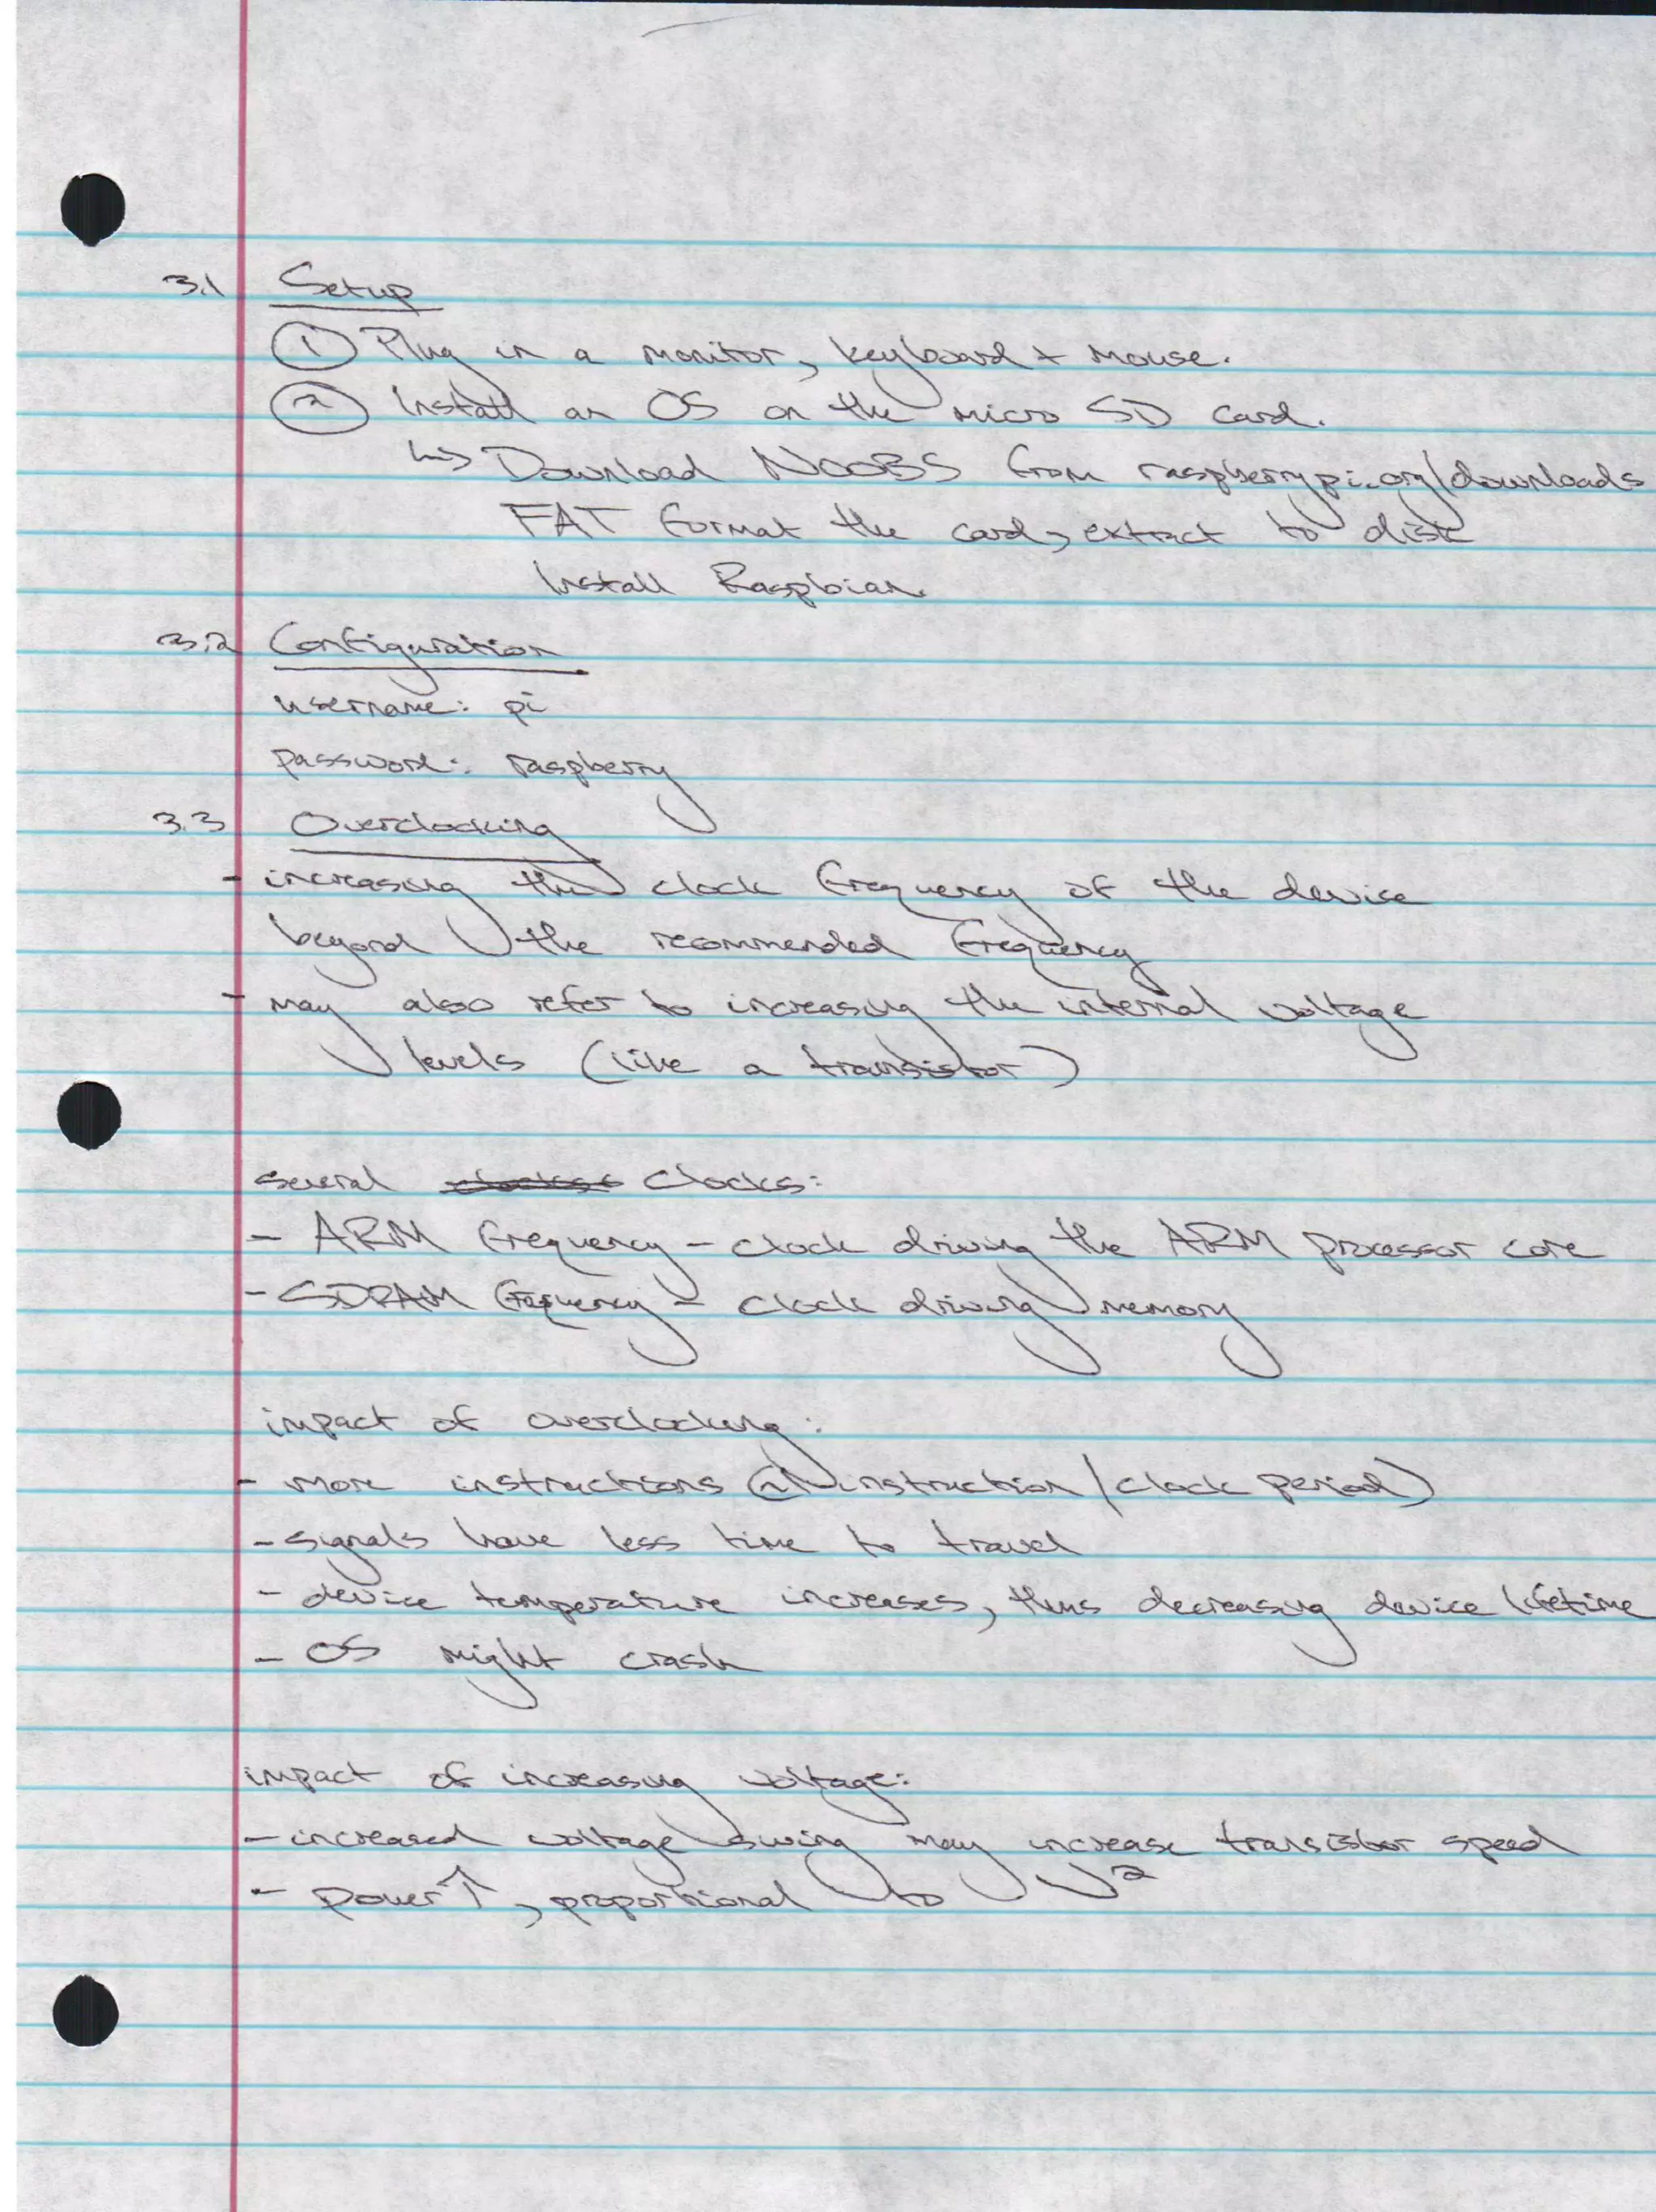 3.1 Setup
① Plug in a monitor, keyboard + mouse.
② Install an OS on the micro SD card.
↳ Download NOOBS from raspberrypi.org/downloads
FAT format the card, extract to disk
Install Raspbian.
3.2 Configuration
username: pi
password: raspberry
3.3 Overclocking
- increasing the clock frequency of the device
beyond the recommended frequency
- may also refer to increasing the internal voltage
levels (like a transistor)
several clocks:
- ARM frequency - clock driving the ARM processor core
- SDRAM frequency - clock driving memory
impact of overclocking:
- more instructions (~1 instruction/clock period)
- signals have less time to travel
- device temperature increases, thus decreasing device lifetime
- OS might crash
impact of increasing voltage:
- increased voltage swing may increase transistor speed
- power ↑, proportional to V²